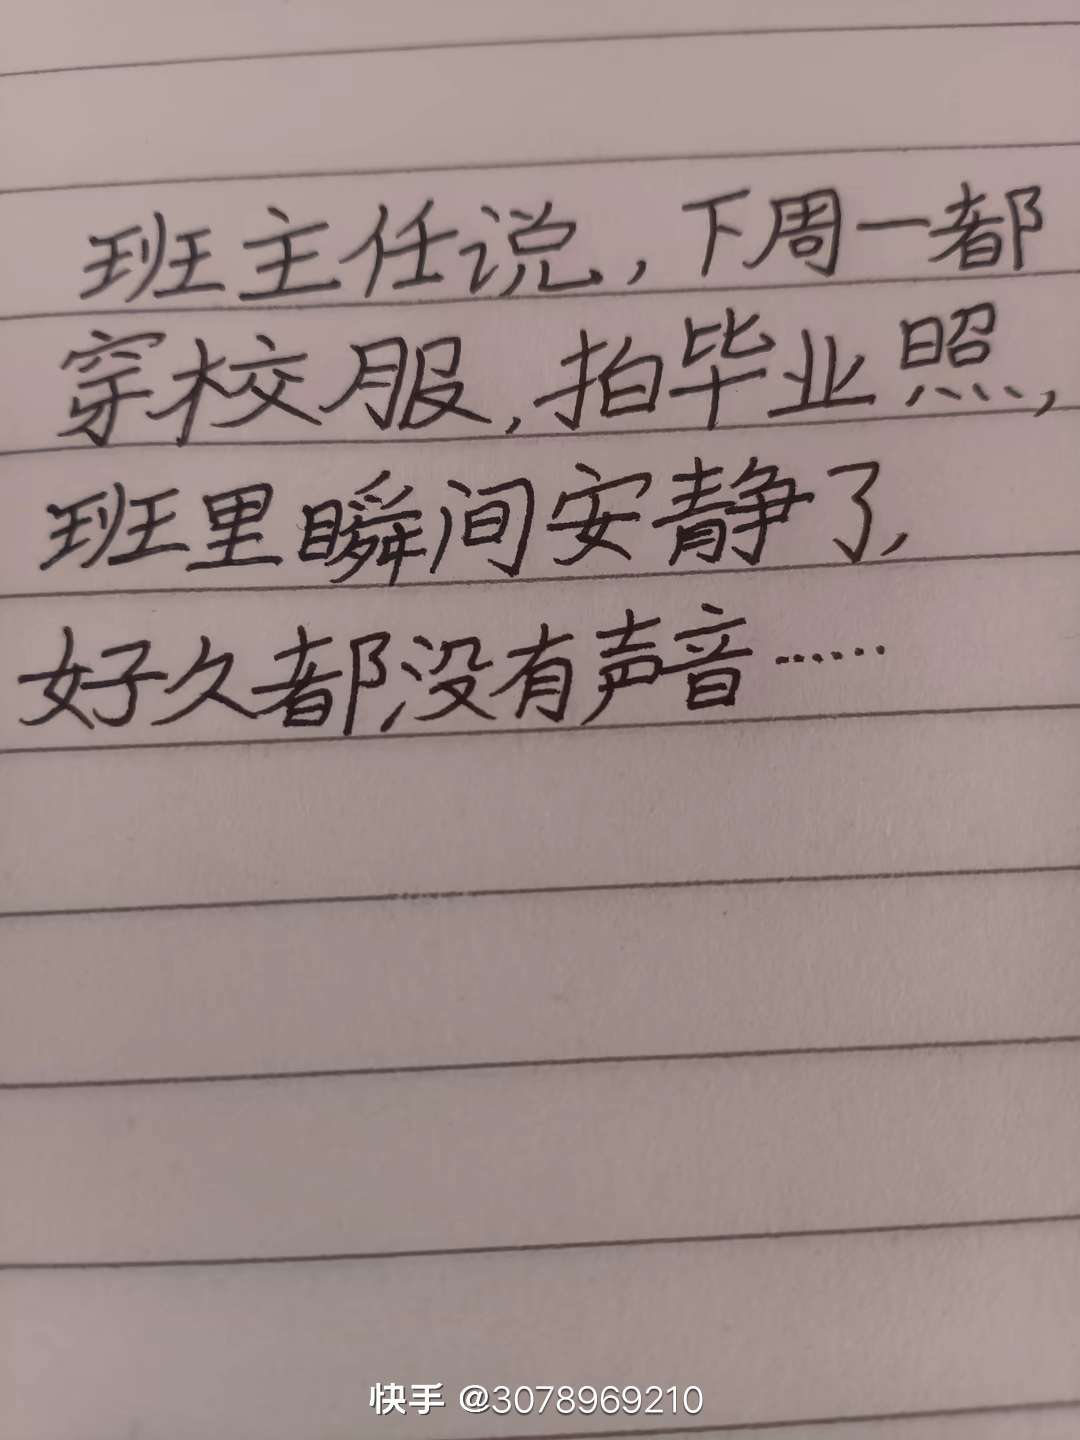 班主任说,下周一都
穿校服,拍毕业照,
班里瞬间安静了,
好久都没有声音……
快手 @3078969210